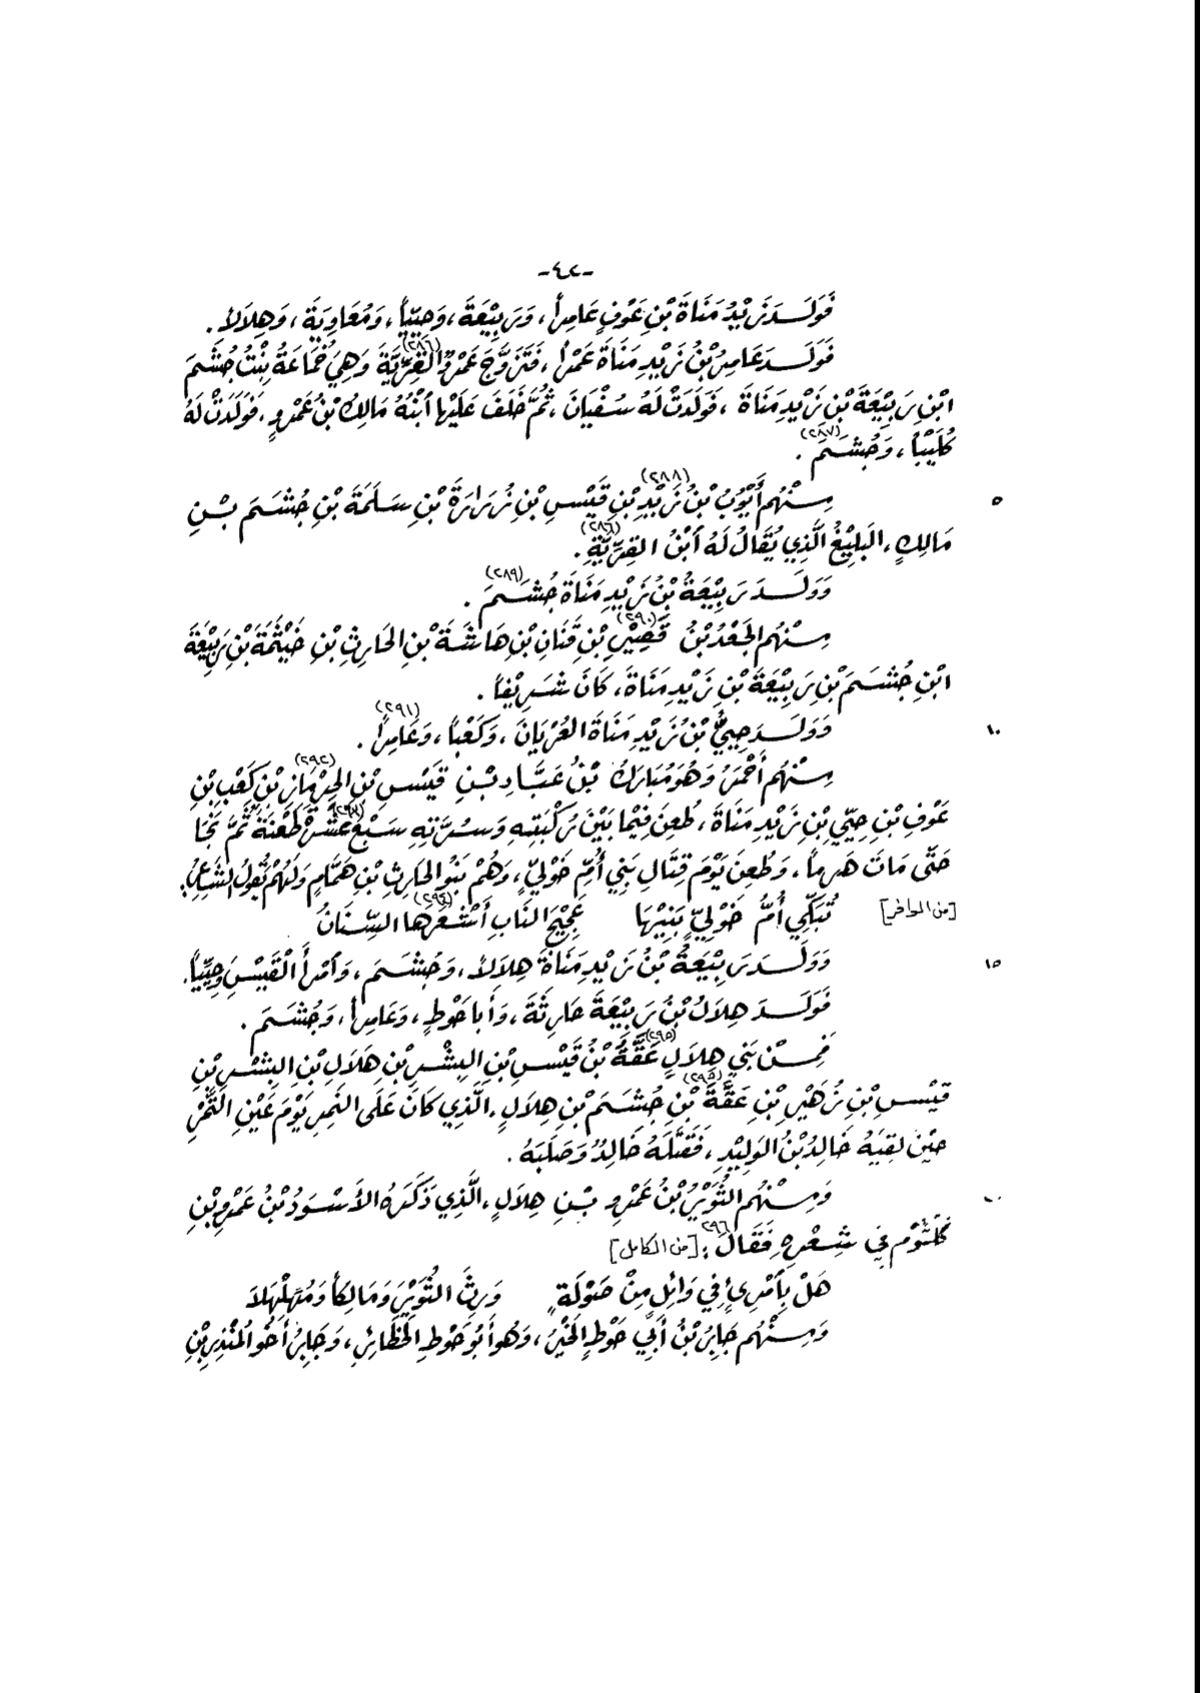 -٤٢-
فَوَلَدَ زَيْدُ مَنَاةَ بْنِ عَوْفٍ عَامِراً، وَرَبِيْعَةَ، وَحِيِّيّاً، وَمُعَاوِيَةَ، وَهِلَالاً.
فَوَلَدَ عَامِرُ بْنُ زَيْدِ مَنَاةَ عَمْراً، فَتَزَوَّجَ عَمْرٌو القِرِّيَّةَ (٢٨٦) وَهِيَ خُمَاعَةُ بِنْتُ جُشَمَ
ابْنِ رَبِيْعَةَ بْنِ زَيْدِ مَنَاةَ، فَوَلَدَتْ لَهُ سُفْيَانَ، ثُمَّ خَلَفَ عَلَيْهَا ابْنُهُ مَالِكُ بْنُ عَمْرٍو، فَوَلَدَتْ لَهُ
كُلَيْباً، وَجُشَمَ (٢٨٧).
٥ مِنْهُم أَيُّوْبُ بْنُ زَيْدِ (٢٨٨) بْنِ قَيْسِ بْنِ زُرَارَةَ بْنِ سَلَمَةَ بْنِ جُشَمَ بْنِ
مَالِكٍ، البَلِيْغُ الَّذِي يُقَالُ لَهُ ابْنُ القِرِّيَّةِ (٢٨٦).
وَوَلَدَ رَبِيْعَةُ بْنُ زَيْدِ مَنَاةَ جُشَمَ (٢٨٩).
مِنْهُم الجَعْدُ بْنُ قَصِيْرِ (٢٩٠) بْنِ قَنَانِ بْنِ هَاشَةَ بْنِ الحَارِثِ بْنِ خَيْثَمَةَ بْنِ رَبِيْعَةَ
ابْنِ جُشَمَ بْنِ رَبِيْعَةَ بْنِ زَيْدِ مَنَاةَ، كَانَ شَرِيْفاً.
١٠ وَوَلَدَ حِيِيُّ بْنُ زَيْدِ مَنَاةَ العُرْيَانَ، وَكَعْباً، وَعَامِراً (٢٩١).
مِنْهُم أَحْمَرُ وَهُوَ مُبَارَكُ بْنُ عَبَّادِ بْنِ قَيْسِ بْنِ الحِرْمَازِ (٢٩٢) بْنِ كَعْبِ بْنِ
عَوْفِ بْنِ حِيِّي بْنِ زَيْدِ مَنَاةَ، طُعِنَ فِيْمَا بَيْنَ رُكْبَتِهِ وَسُرَّتِهِ سَبْعَ عَشْرَةَ (٢٩٣) طَعْنَةً ثُمَّ نَجَا
حَتَّى مَاتَ هَرِماً، وَطُعِنَ يَوْمَ قِتَالِ بَنِي أُمِّ خَوْلِيٍّ، وَهُمْ بَنُو الحَارِثِ بْنِ هَمَّامٍ وَلَهُمْ يَقُولُ الشَّاعِرُ:
[من الوافر] تُبَكِّي أُمُّ خَوْلِيٍّ بَنِيْهَا عَجِيْجَ النَّابِ أَشْعَرَهَا (٢٩٤) السِّنَانُ
١٥ وَوَلَدَ رَبِيْعَةُ بْنُ زَيْدِ مَنَاةَ هِلَالاً، وَجُشَمَ، وَامْرَأَ الْقَيْسِ وَحِيِّيّاً.
فَوَلَدَ هِلَالُ بْنُ رَبِيْعَةَ حَارِثَةَ، وَأَبَا حَوْطٍ، وَعَامِراً، وَجُشَمَ.
فَمِنْ بَنِي هِلَالٍ عَقَّةُ (٢٩٥) بْنُ قَيْسِ بْنِ البِشْرِ بْنِ هِلَالِ بْنِ البِشْرِ بْنِ
قَيْسِ بْنِ زُهَيْرِ بْنِ عَقَّةَ (٢٩٥) بْنِ جُشَمَ بْنِ هِلَالٍ، الَّذِي كَانَ عَلَى النَّمِرِ يَوْمَ عَيْنِ التَّمْرِ
حِيْنَ لَقِيَهُ خَالِدُ بْنُ الوَلِيْدِ، فَقَتَلَهُ خَالِدٌ وَصَلَبَهُ.
٢٠ وَمِنْهُم الثُّوَيْرُ بْنُ عَمْرِو بْنِ هِلَالٍ، الَّذِي ذَكَرَهُ الأَسْوَدُ بْنُ عَمْرِو بْنِ
كُلْثُوْمٍ فِي شِعْرِهِ فَقَالَ ٢٩٦: [من الكامل]
هَلْ بِامْرِئٍ فِي وَائِلٍ مِنْ صَوْلَةٍ وَرِثَ الثُّوَيْرَ وَمَالِكاً وَمُهَلْهِلَا
وَمِنْهُم جَابِرُ بْنُ أَبِي حَوْطٍ الخَيْرُ، وَهُوَ أَبُو حَوْطِ الحَظَائِرِ، وَجَابِرُ أَخُو المُنْذِرِ بْنِ